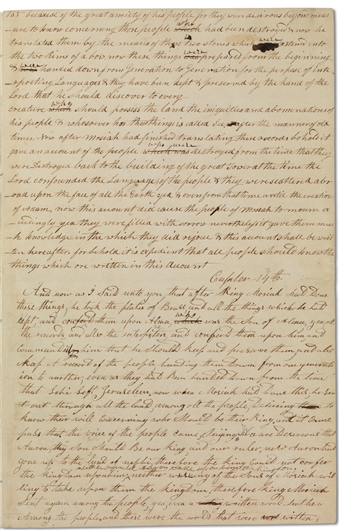 155 because of the great anxiety of his people for they were desirous beyond meas
ure to know concerning those people who had been destroyed & now he
translated them by the means of those two stones which was fastened into
the two rims of a bow now these things was prepared from the beginning
& was handed down from generation to generation for the purpose of inter
preting Languages & they have been kept & preserved by the hand of the
Lord that he should discover to every
creature who should possess the land the iniquities and abominations of
his people & whosoever has these things is called seer after the manner of old
times now after Mosiah had finished translating these records behold it
gave an account of the people who was destroyed from the time that they
were destroyed back to the building of the great tower at the time the
Lord confounded the Language of the people & they were scattered abr
oad upon the face of all the Earth yea & even from that time until the creation
of Adam, now this account did cause the people of Mosiah to mourn e
xceedingly yea they were filled with sorrow nevertheless it gave them mu
ch knowledge in the which they did rejoice & this account shall be writ
ten hereafter for behold it is expedient that all people should know the
things which are written in this account
Chapter 13th
And now as I said unto you, that after King Mosiah had done
these things, he took the plates of Brass and all the things which he had
kept, and confered them upon Alma who was the son of Alma, yea all
the records and also the interpreters and confered them upon him and
commanded him that he should keep and preserve them and also
keep a record of the people handing them down from one generati
on to another, even as they had been handed down from the time
that Lehi left Jerusalem, now when Mosiah had done this he sent
out through all the land among all the people, desiring to
know their will concerning who should be their King, and it came
pass that the voice of the people came, Saying, we are desirous that
Aaron thy Son should be our King and our ruler, now Aaron had
gone up to the land of Nephi therefore the King could not confer
the Kingdom upon him, neither would
neither were any of the Sons of Mosiah wil
ling to take upon them the Kingdom, therefore King Mosiah
sent again among the people, yea even a written word sent he a
mong the people, and these were the words that were written